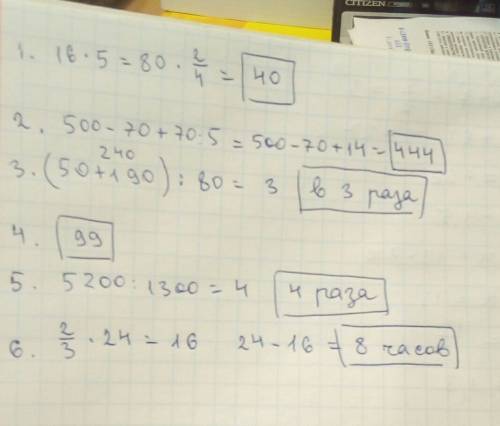 CITIZEN
1. 16 · 5 = 80 · 2/4 = 40
2. 500 - 70 + 70 : 5 = 500 - 70 + 14 = 444
240
3. (50 + 190) : 80 = 3 в 3 раза
4. 99
5. 5200 : 1300 = 4 4 раза
6. 2/3 · 24 = 16 24 - 16 = 8 часов